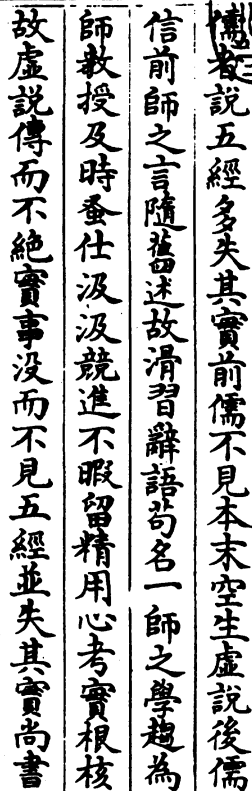 儒者説五經多失其實前儒不見本末空生虛説後儒
信前師之言隨舊述故滑習辭語苟名一師之學趨為
師教授及時蚤仕汲汲競進不暇留精用心考實根核
故虛説傳而不絕實事没而不見五經並失其實尚書